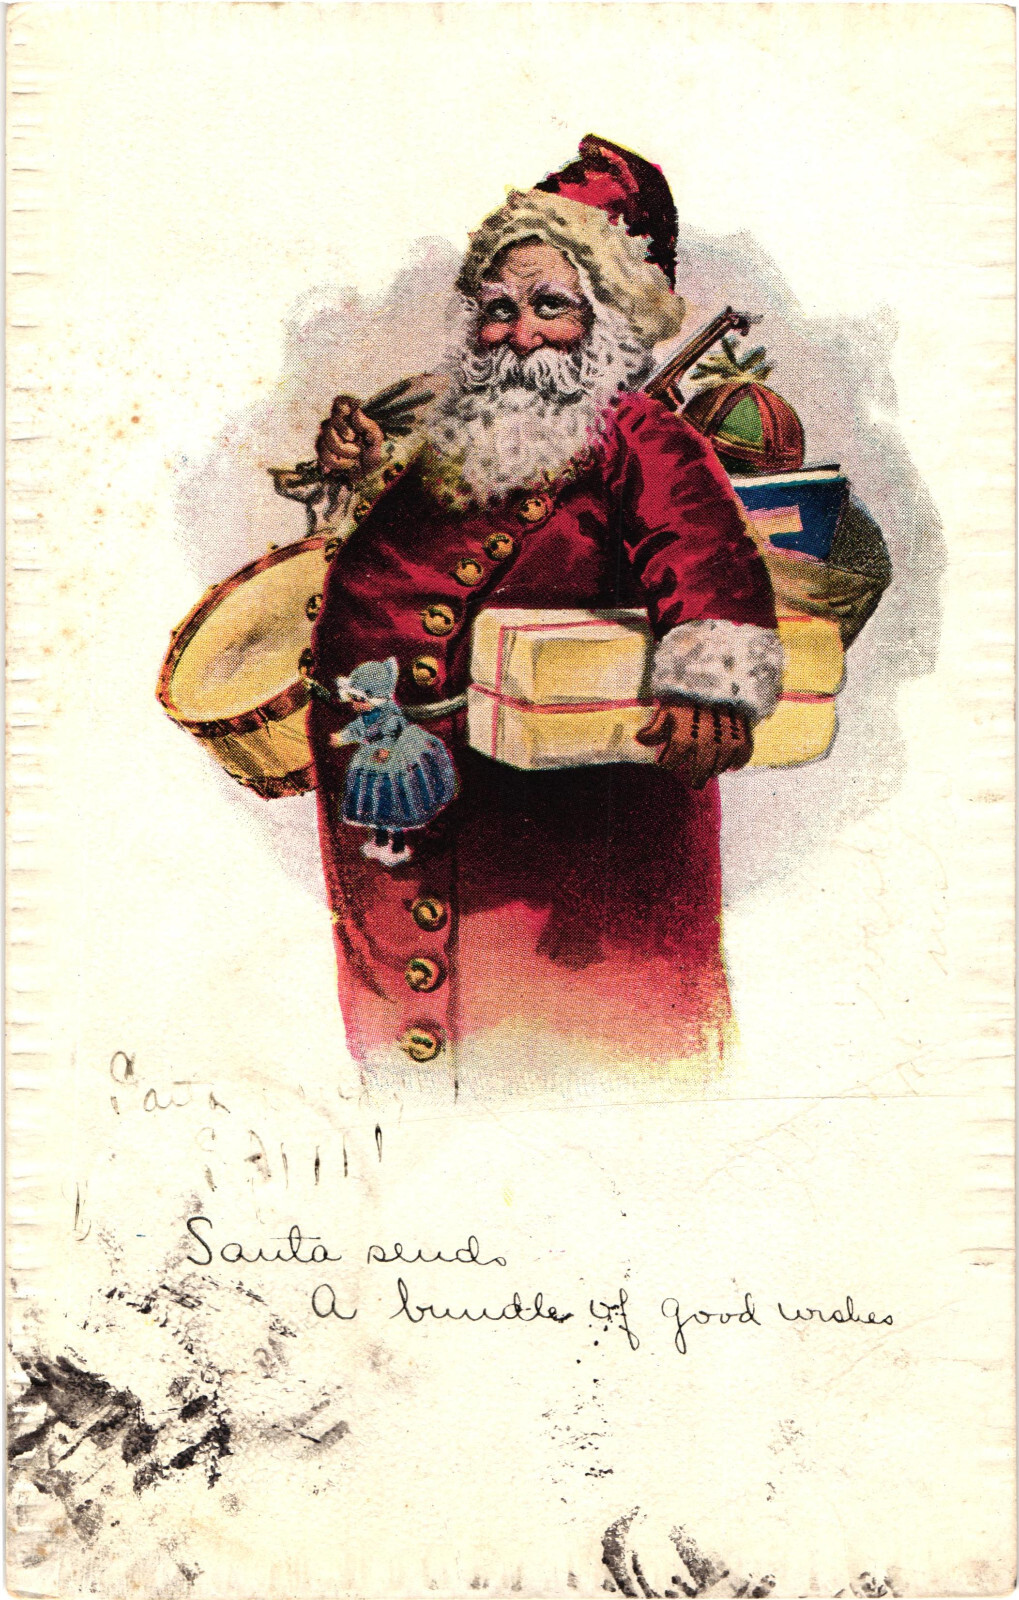 Santa
Santa sends
A bundle of good wishes